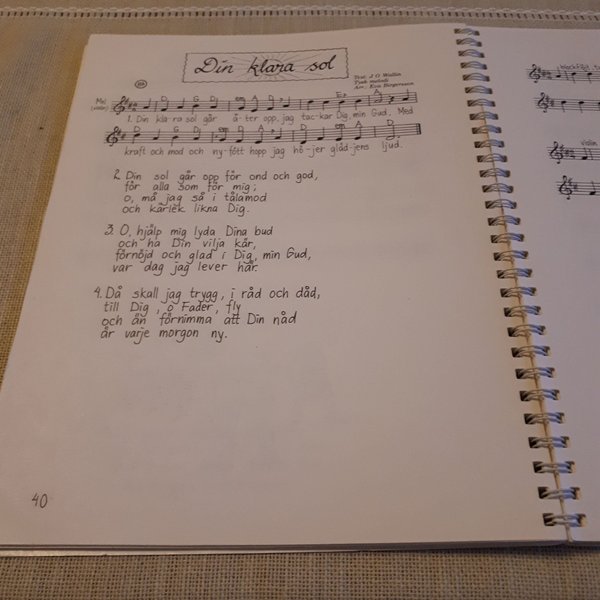 Din klara sol
Text: J O Wallin
Tysk melodi
Arr: Eva Birgersson
Mel
(violin)
D G D em D A D E7 A
1. Din kla-ra sol går å-ter opp, jag tac-kar Dig, min Gud, Med
D G D em D A D em A D
kraft och mod och ny-fött hopp jag hö-jer gläd-jens ljud.
2. Din sol går opp för ond och god,
för alla som för mig;
o, må jag så i tålamod
och kärlek likna Dig.
3. O, hjälp mig lyda Dina bud
och ha Din vilja kär,
förnöjd och glad i Dig, min Gud,
var dag jag lever här.
4. Då skall jag trygg, i råd och dåd,
till Dig, o Fader, fly
och än förnimma att Din nåd
är varje morgon ny.
40
violin